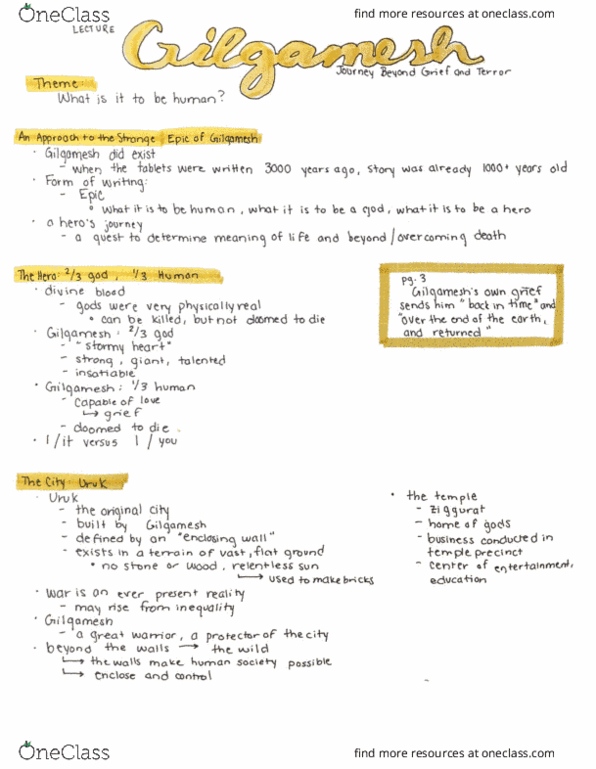 OneClass
find more resources at oneclass.com
LECTURE
Gilgamesh
Journey Beyond Grief and Terror
Theme:
What is it to be human?
An Approach to the Strange Epic of Gilgamesh
· Gilgamesh did exist
- when the tablets were written 3000 years ago, story was already 1000+ years old
· Form of writing:
- Epic
• what it is to be human, what it is to be a god, what it is to be a hero
· a hero's journey
- a quest to determine meaning of life and beyond/overcoming death
The Hero: 2/3 god, 1/3 Human
· divine blood
- gods were very physically real
• can be killed, but not doomed to die
· Gilgamesh: 2/3 god
- "stormy heart"
- strong, giant, talented
- insatiable
· Gilgamesh: 1/3 human
- capable of love
↳ grief
- doomed to die
· I/it versus I/you
pg. 3
Gilgamesh's own grief
sends him "back in time" and
"over the end of the earth,
and returned"
The City Uruk
· Uruk
- the original city
- built by Gilgamesh
- defined by an "enclosing wall"
- exists in a terrain of vast, flat ground
• no stone or wood, relentless sun
↳ used to make bricks
· war is an ever present reality
- may rise from inequality
· Gilgamesh
- a great warrior, a protector of the city
· beyond the walls → the wild
↳ the walls make human society possible
↳ enclose and control
• the temple
- ziggurat
- home of gods
- business conducted in
temple precinct
- center of entertainment,
education
OneClass
find more resources at oneclass.com